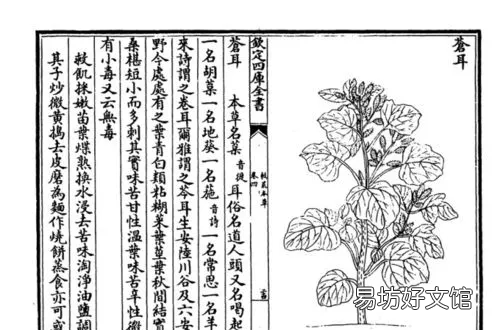 蒼耳
欽定四庫全書
救荒本草
卷四
蒼耳 本草名葈音徙耳俗名道人頭又名喝起
一名胡葈一名地葵一名葹音詩一名常思一名羊
來詩謂之卷耳爾雅謂之苓耳生安陸川谷及六安
野今處處有之葉青白類粘糊菜葉莖葉秋間結實
桑椹短小而多刺其實味苦甘性溫葉味苦辛性微
有小毒又云無毒
救飢採嫩苗葉煠熟換水浸去苦味淘淨油鹽調
其子炒微黃搗去皮磨為麵作燒餅蒸食亦可或
易坊好文馆